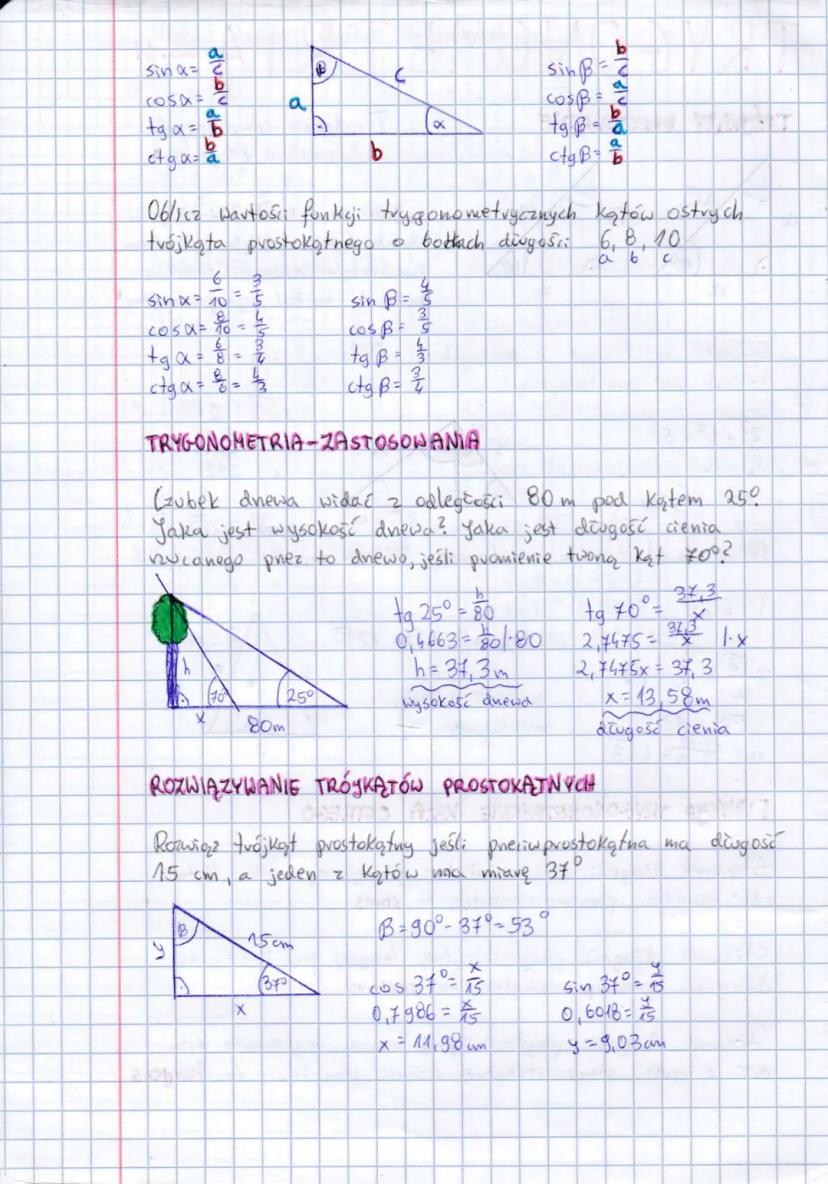 sin α = a/c
cos α = b/c
tg α = a/b
ctg α = b/a
β
c
a
α
b
sin β = b/c
cos β = a/c
tg β = b/a
ctg β = a/b
Oblicz wartości funkcji trygonometrycznych kątów ostrych
trójkąta prostokątnego o bokach długości: 6, 8, 10
a b c
sin α = 6/10 = 3/5
cos α = 8/10 = 4/5
tg α = 6/8 = 3/4
ctg α = 8/6 = 4/3
sin β = 4/5
cos β = 3/5
tg β = 4/3
ctg β = 3/4
TRYGONOMETRIA - ZASTOSOWANIA
Czubek drzewa widać z odległości 80 m pod kątem 25°.
Jaka jest wysokość drzewa? Jaka jest długość cienia
rzucanego przez to drzewo, jeśli promienie tworzą kąt 70°?
h
70°
25°
x
80m
tg 25° = h/80
0,4663 = h/80 |·80
h = 37,3 m
wysokość drzewa
tg 70° = 37,3/x
2,7475 = 37,3/x |·x
2,7475x = 37,3
x = 13,58 m
długość cienia
ROZWIĄZYWANIE TRÓJKĄTÓW PROSTOKĄTNYCH
Rozwiąż trójkąt prostokątny jeśli przeciwprostokątna ma długość
15 cm, a jeden z kątów ma miarę 37°
β
15 cm
y
37°
x
β = 90° - 37° = 53°
cos 37° = x/15
0,7986 = x/15
x = 11,98 cm
sin 37° = y/15
0,6018 = y/15
y = 9,03 cm